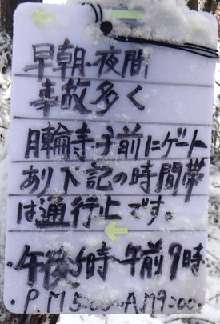 早朝・夜間
事故多く
月輪寺・子前にゲート
あり下記の時間帯
は通行止です。
・午後5時~午前9時
・P.M 5:00~A.M 9:00.